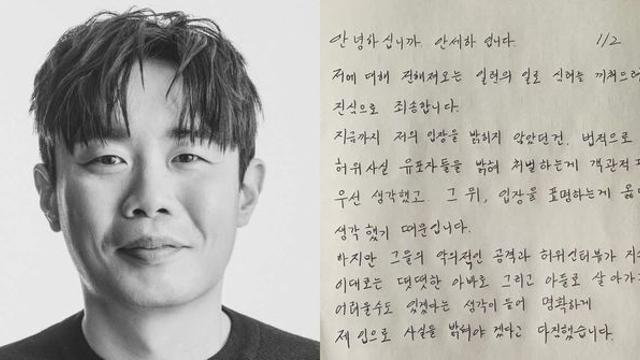 안녕하십니까. 안세하 입니다. 1/2
저에 대해 전해져오는 일련의 일로 심려를 끼쳐드려
진심으로 죄송합니다.
지금까지 저의 입장을 밝히지 않았던건, 법적으로
허위사실 유포자들을 밝혀 처벌하는게 객관적
우선 생각했고, 그 뒤, 입장을 표명하는게 옳
생각 했기 때문입니다.
하지만 그들의 악의적인 공격과 허위인터뷰가 지
이대로는 떳떳한 아빠로 그리고 아들로 살아가
어려울수도 있겠다는 생각이 들어 명확하게
제 입으로 사실을 밝혀야 겠다고 다짐했습니다.